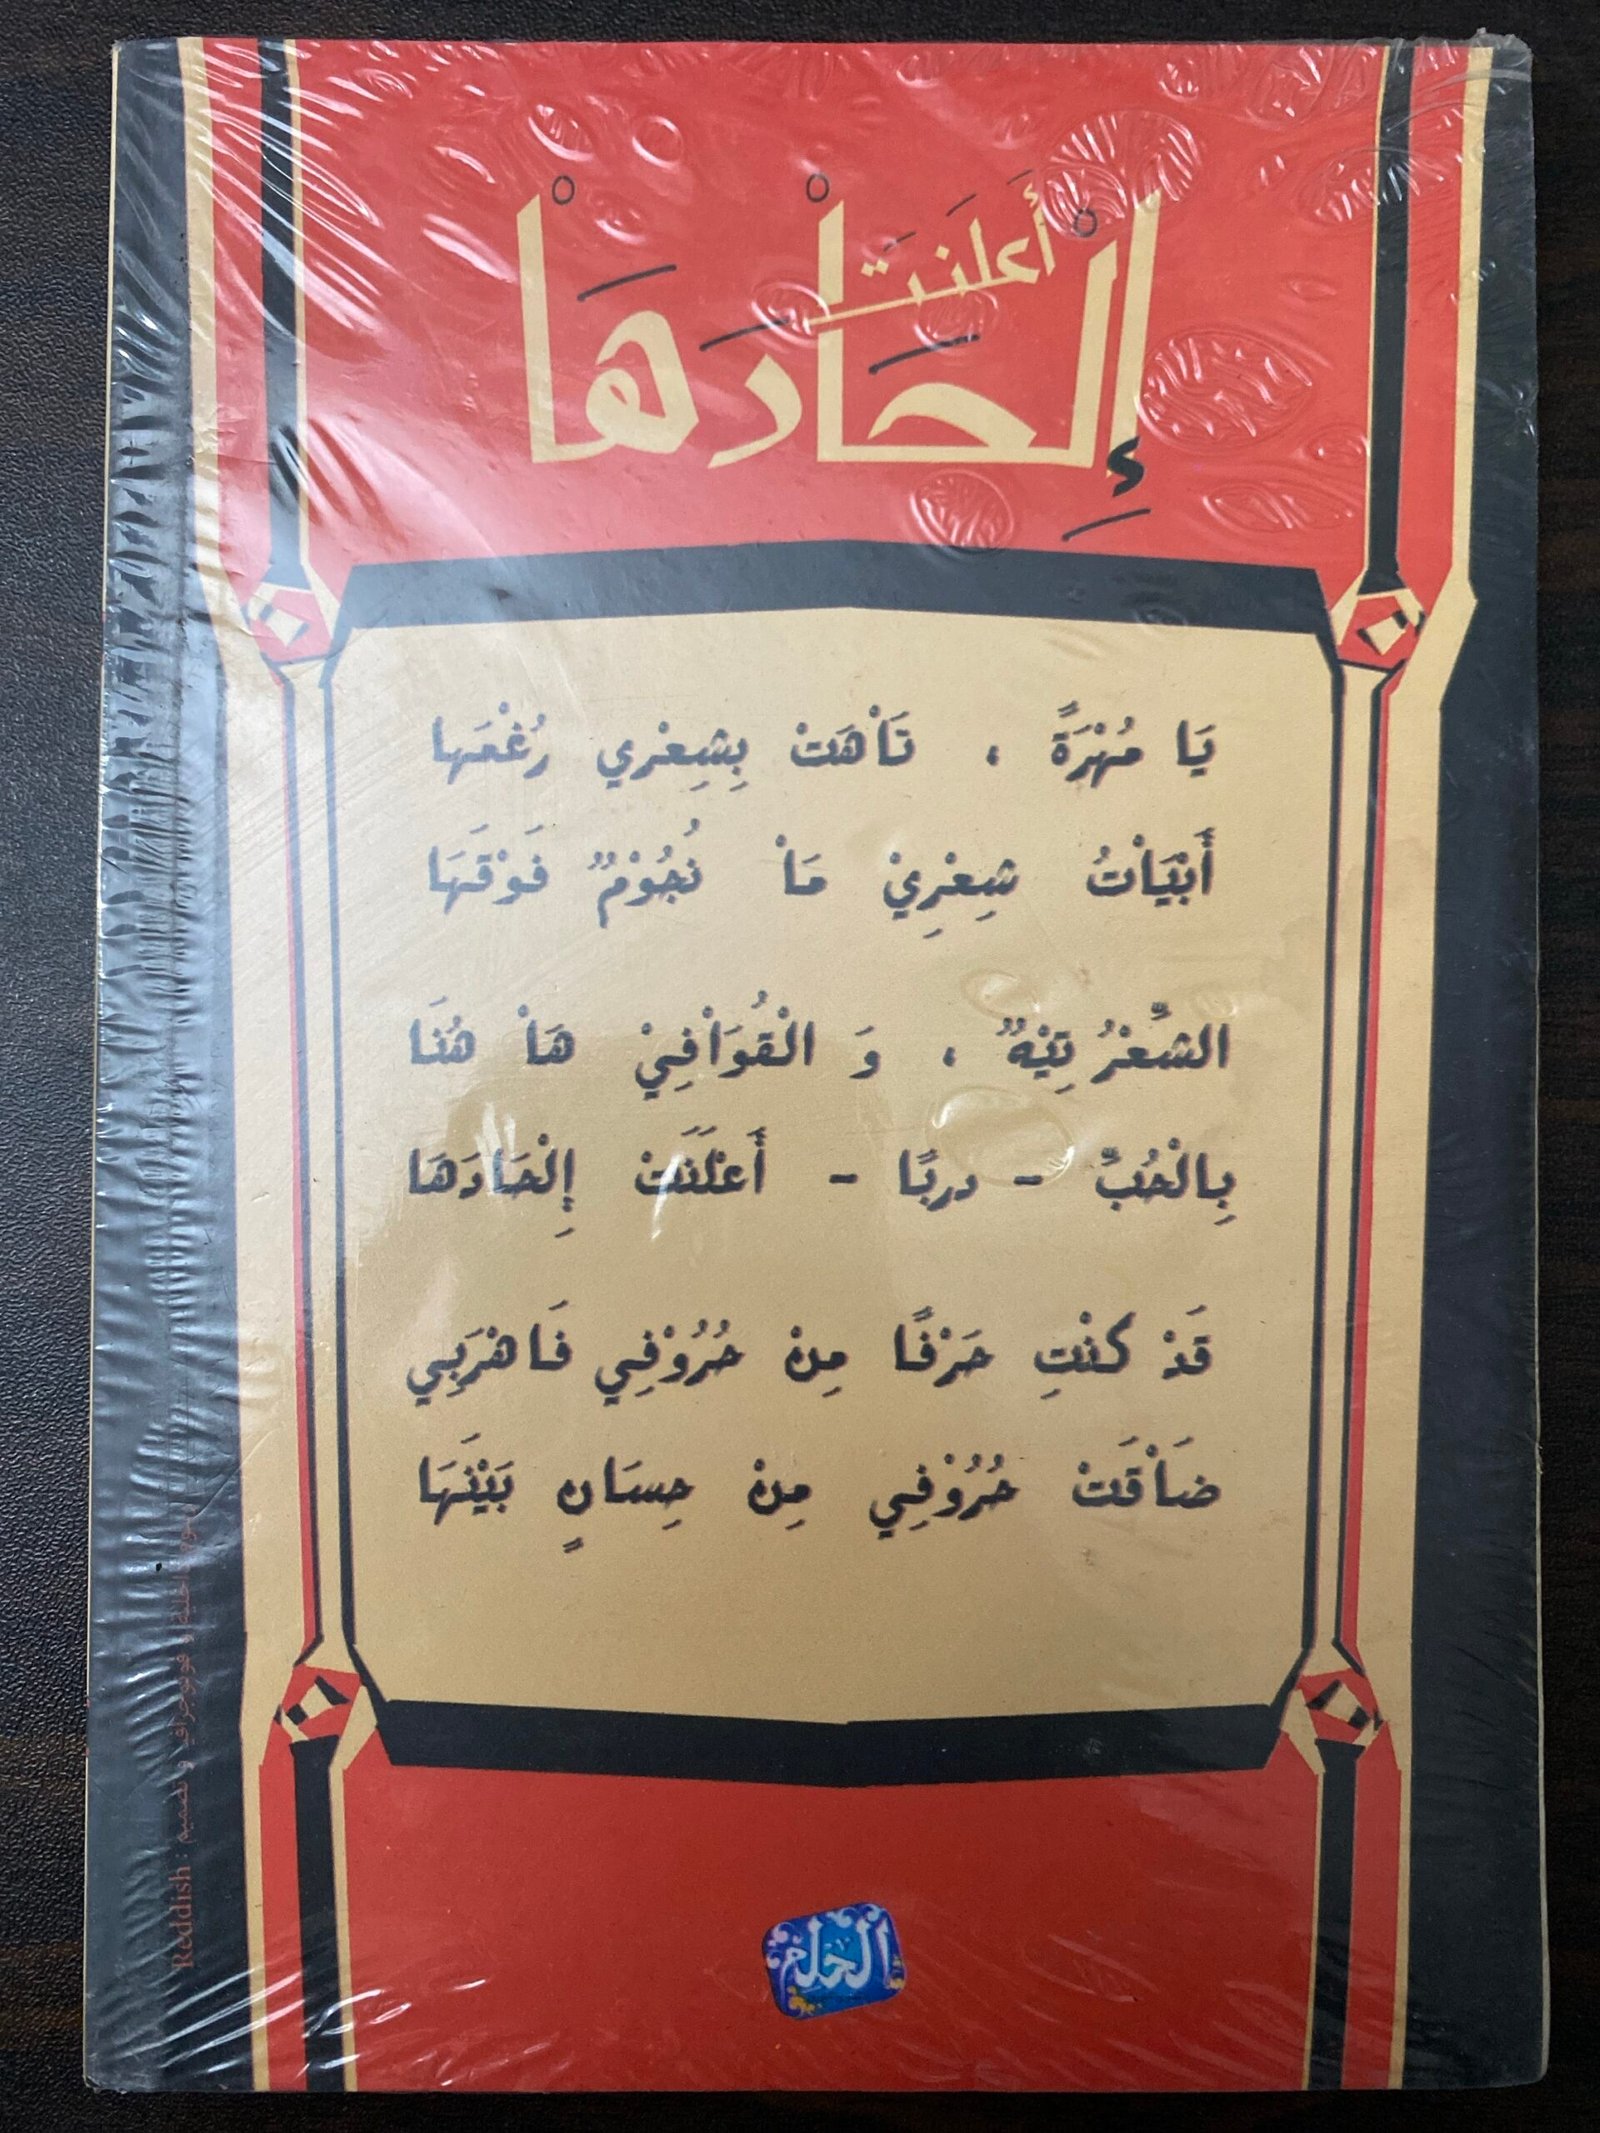 أَعلَنَتْ
إِلْحَاْدَهَاْ
يَا مُهْرَةً ، تَاْهَتْ بِشِعْرِي رُغْمَها
أَبْيَاْتُ شِعْرِيْ مَاْ نُجُوْمٌ فَوْقَهَا
الشِّعْرُ تِيْهٌ ، وَ الْقُوَاْفِيْ هَاْ هُنَا
بِالْحُبِّ - دربًا - أَعْلَنَتْ إِلْحَادَهَا
قَدْ كنْتِ حَرْفًا مِنْ حُرُوْفِي فَاهْرَبِي
ضَاْقَتْ حُرُوْفِي مِنْ حِسَانٍ بَيْنَهَا
الحلم
Reddish : و فوتوجرافي و تصميم